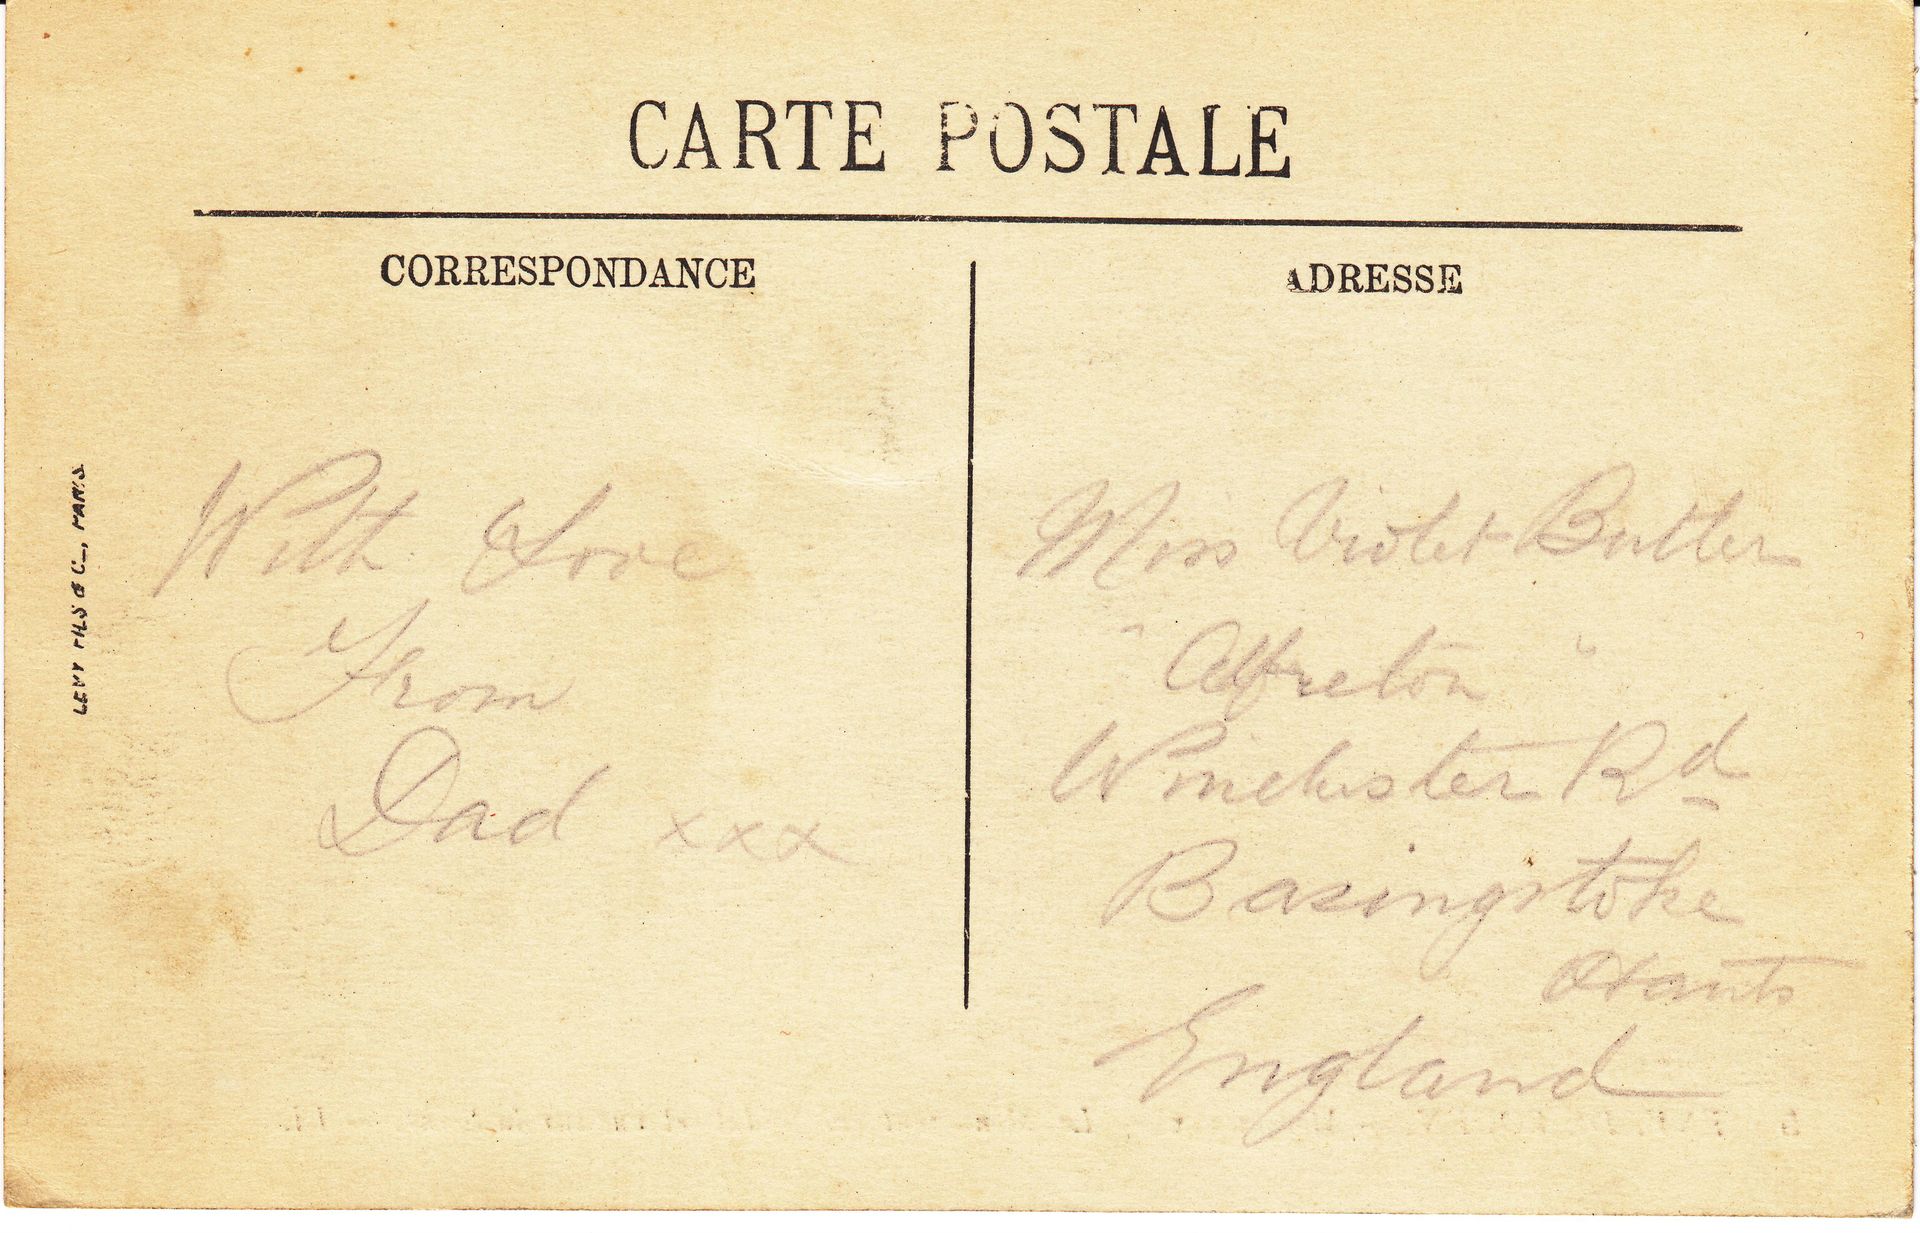 CARTE POSTALE
CORRESPONDANCE
With Love
From
Dad xxx
ADRESSE
Miss Violet Butler
"Alfreton"
Winchester Rd
Basingstoke
Hants
England
LEVY FILS & C_, PARIS